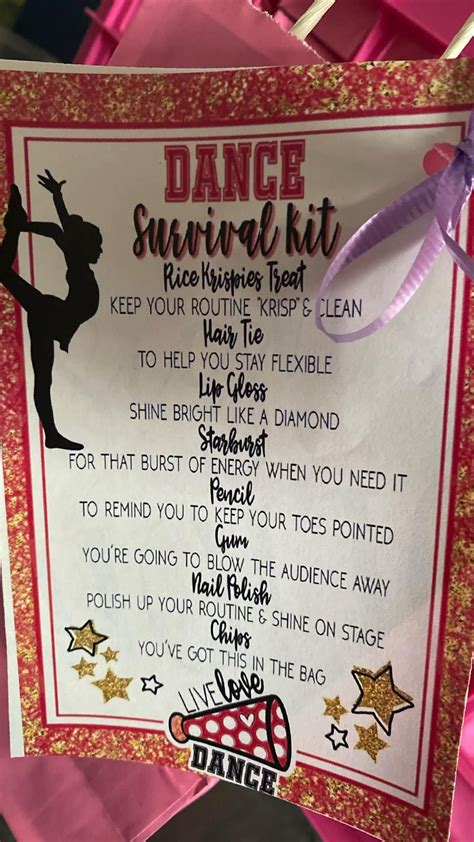 DANCE
Survival Kit
Rice Krispies Treat
KEEP YOUR ROUTINE "KRISP" & CLEAN
Hair Tie
TO HELP YOU STAY FLEXIBLE
Lip Gloss
SHINE BRIGHT LIKE A DIAMOND
Starburst
FOR THAT BURST OF ENERGY WHEN YOU NEED IT
Pencil
TO REMIND YOU TO KEEP YOUR TOES POINTED
Gum
YOU'RE GOING TO BLOW THE AUDIENCE AWAY
Nail Polish
POLISH UP YOUR ROUTINE & SHINE ON STAGE
Chips
YOU'VE GOT THIS IN THE BAG
LIVE love
DANCE